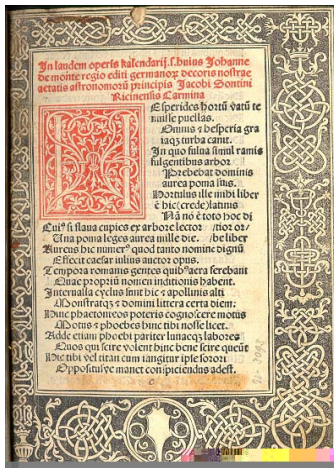 In laudem operis kalendarij.s.huius Johanne
de monte regio editi germanoꝝ decoris nostrae
aetatis astronomorū principis Jacobi Sentini
Ricinensis Carmina
HEsperides hortū vatū te
nuisse puellas.
Omnis ⁊ hesperia gra
iaqꝫ turba canit.
In quo fulua simul ramis
fulgentibus arbor
Prebebat dominis
aurea poma suis.
Hortulus ille mihi liber
ē hic (crede) latinus
Nā nō ē toto hoc di
Cuiꝰ si flaua cupies ex arbore lector /tior or/
Una poma leges aurea mille die. /be liber
Aureus hic numerꝰ quod tanto nomine dignū
Effecit caesar iulius auctor opus.
Tempora romanis gentes quibꝰ aera ferebant
Quae propriū nomen inditionis habent.
Interualla cyclus sunt hic ⁊ apollinis alti
Monstratqꝫ ⁊ domini littera certa diem:
Hinc phaetonteos poteris cognoscere motus
Motus ⁊ phoebes hinc tibi nosse licet.
Adde etiam phoebi pariter lunaeqꝫ labores
Quos qui scire volent hinc bene scire queūt
Hic tibi vel titan cum iungitur ipse sorori
Oppositusve manet conspiciendus adest.